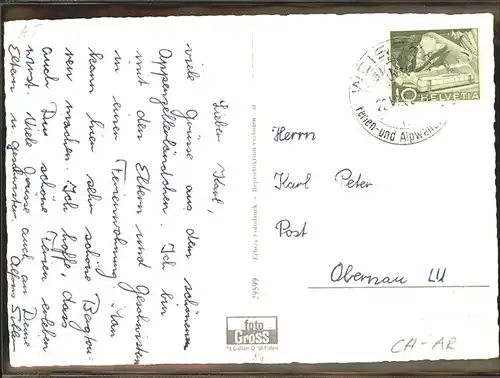 AI
Lieber Karl,
viele Grüsse aus dem schönenen
Appenzellerländchen. Ich bin
mit den Eltern und Geschwister
in einer Ferienwohnung. Man
kann hier sehr schöne Bergtou-
ren machen. Ich hoffe, dass
auch Du schöne Ferien erleben
wirst. Viele Grüsse auch an Deine
Eltern u. geschwister.
Echtes Fotodruck - Reproduktion verboten
29599
foto
Gross
St. Gallen O St. Fiden
10
HELVETIA
Ferien-und
Herrn
Karl Peter
Post
Obernau LU
CH-AR